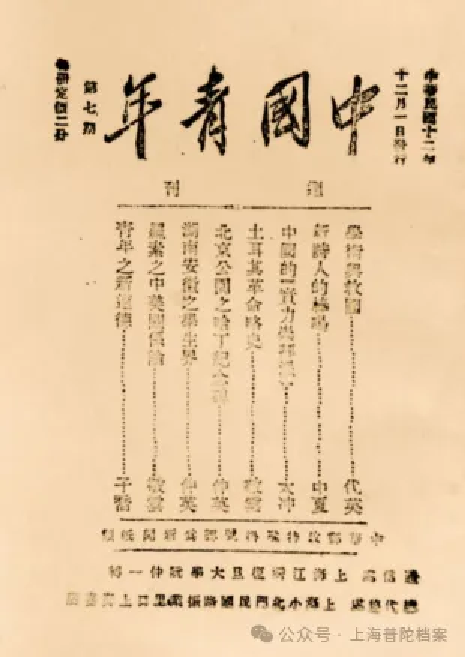 中華民國十二年
十二月一日發行
中國青年
第七期
定價二分
週刊
學術與救國……代英
新詩人的棒喝……中夏
中國的「實力……大冲
土耳其革命略史……敬雲
北京公園之哈丁紀念碑……仲英
湖南安徽之學生界……仲英
羅素之中英關係論……敬雲
青年之新道德……子
中華郵政特准掛號認爲新聞紙類
通信處 上海江灣復旦大學
總代售處 上海小北門民國路振業里口上海書店
公众号·上海普陀档案